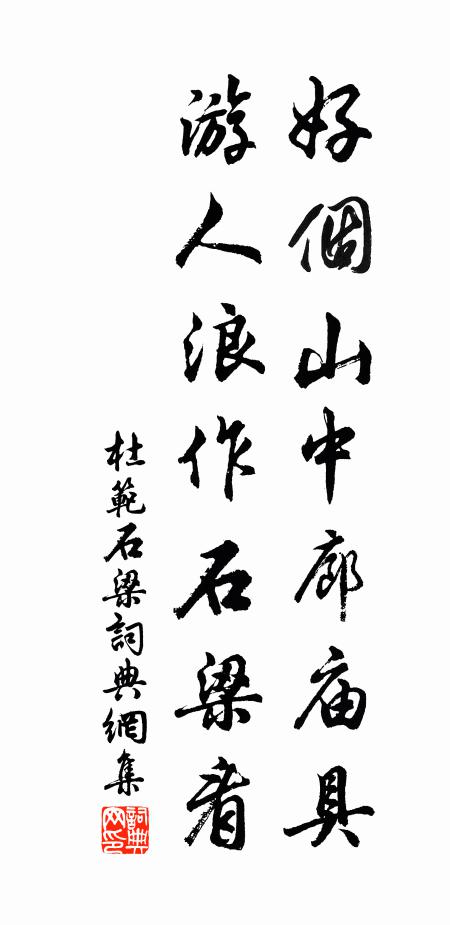 好個山中廊庙具
游人浪作石梁看
杜範石梁詞典網集
詞典网印